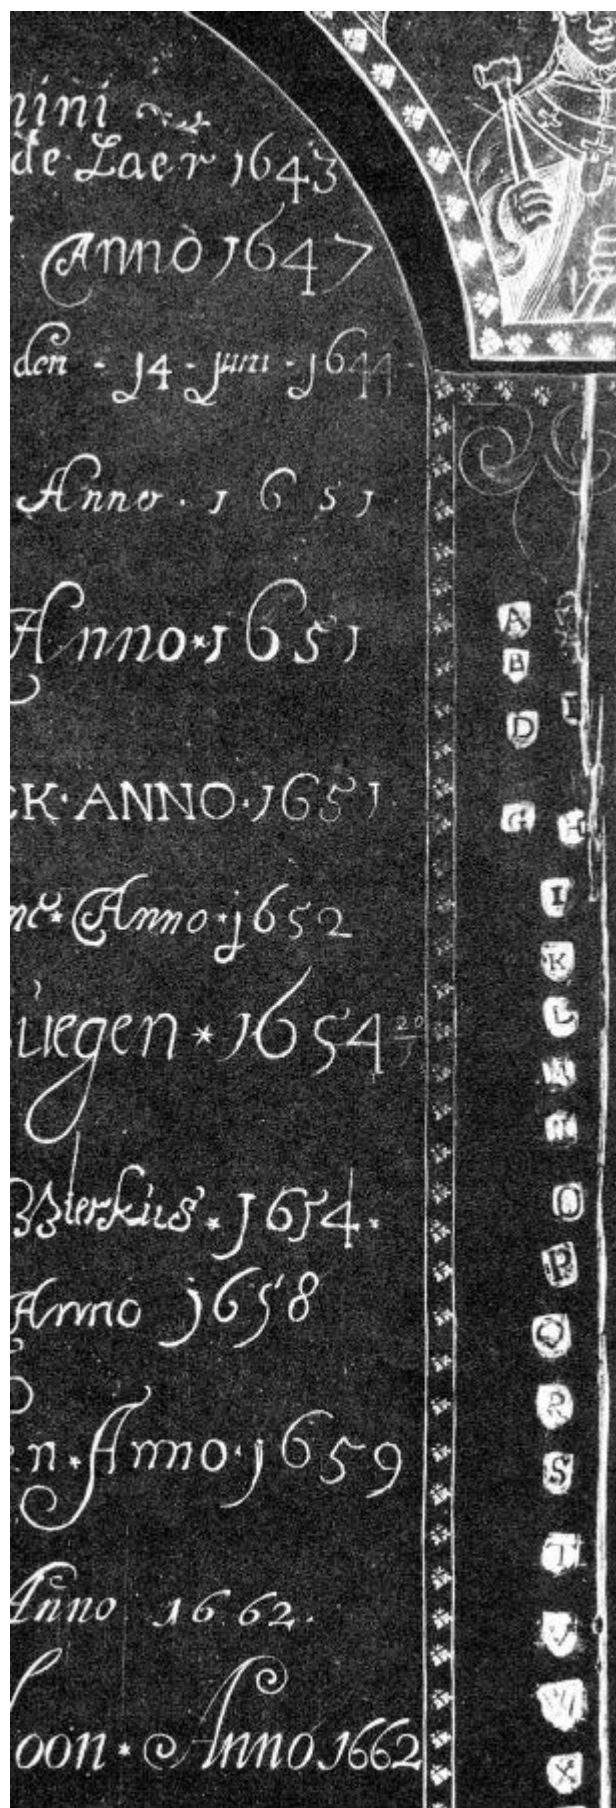 mini
de Laer 1643
Anno 1647
den - 14 - juni - 1644 -
Anno · 1651
Anno * 1651
CK · ANNO · 1651
Anno · 1652
liegen * 1654 20
* 1654 ·
Anno 1658
en * Anno · 1659
Anno 1662 ·
oon * Anno 1662
A
B
I
D
G H
I
K
L
M
N
O
P
Q
R
S
T
V
W
X